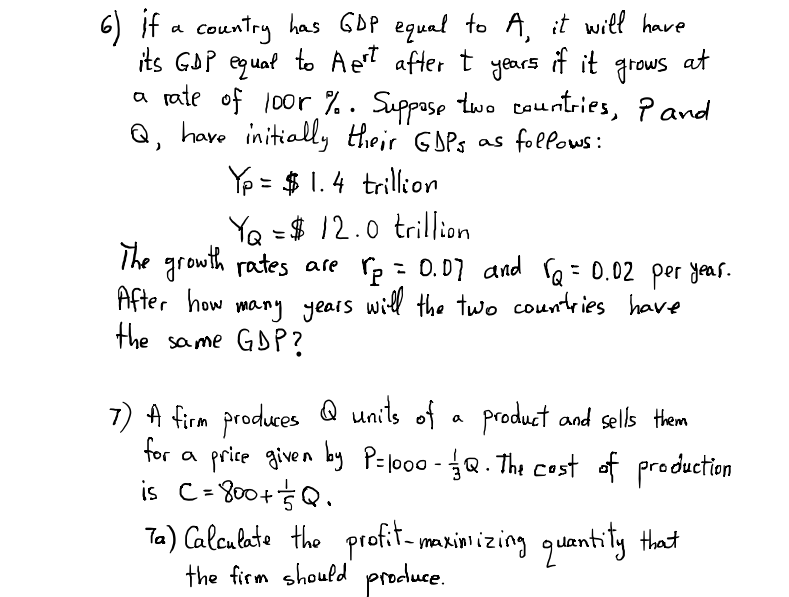 6) If a country has GDP equal to A, it will have
its GDP equal to Ae^rt after t years if it grows at
a rate of 100r %. Suppose two countries, P and
Q, have initially their GDPs as follows:
Y_P = $ 1.4 trillion
Y_Q = $ 12.0 trillion
The growth rates are r_P = 0.07 and r_Q = 0.02 per year.
After how many years will the two countries have
the same GDP?
7) A firm produces Q units of a product and sells them
for a price given by P=1000 - 1/3 Q. The cost of production
is C = 800 + 1/5 Q.
7a) Calculate the profit-maximizing quantity that
the firm should produce.